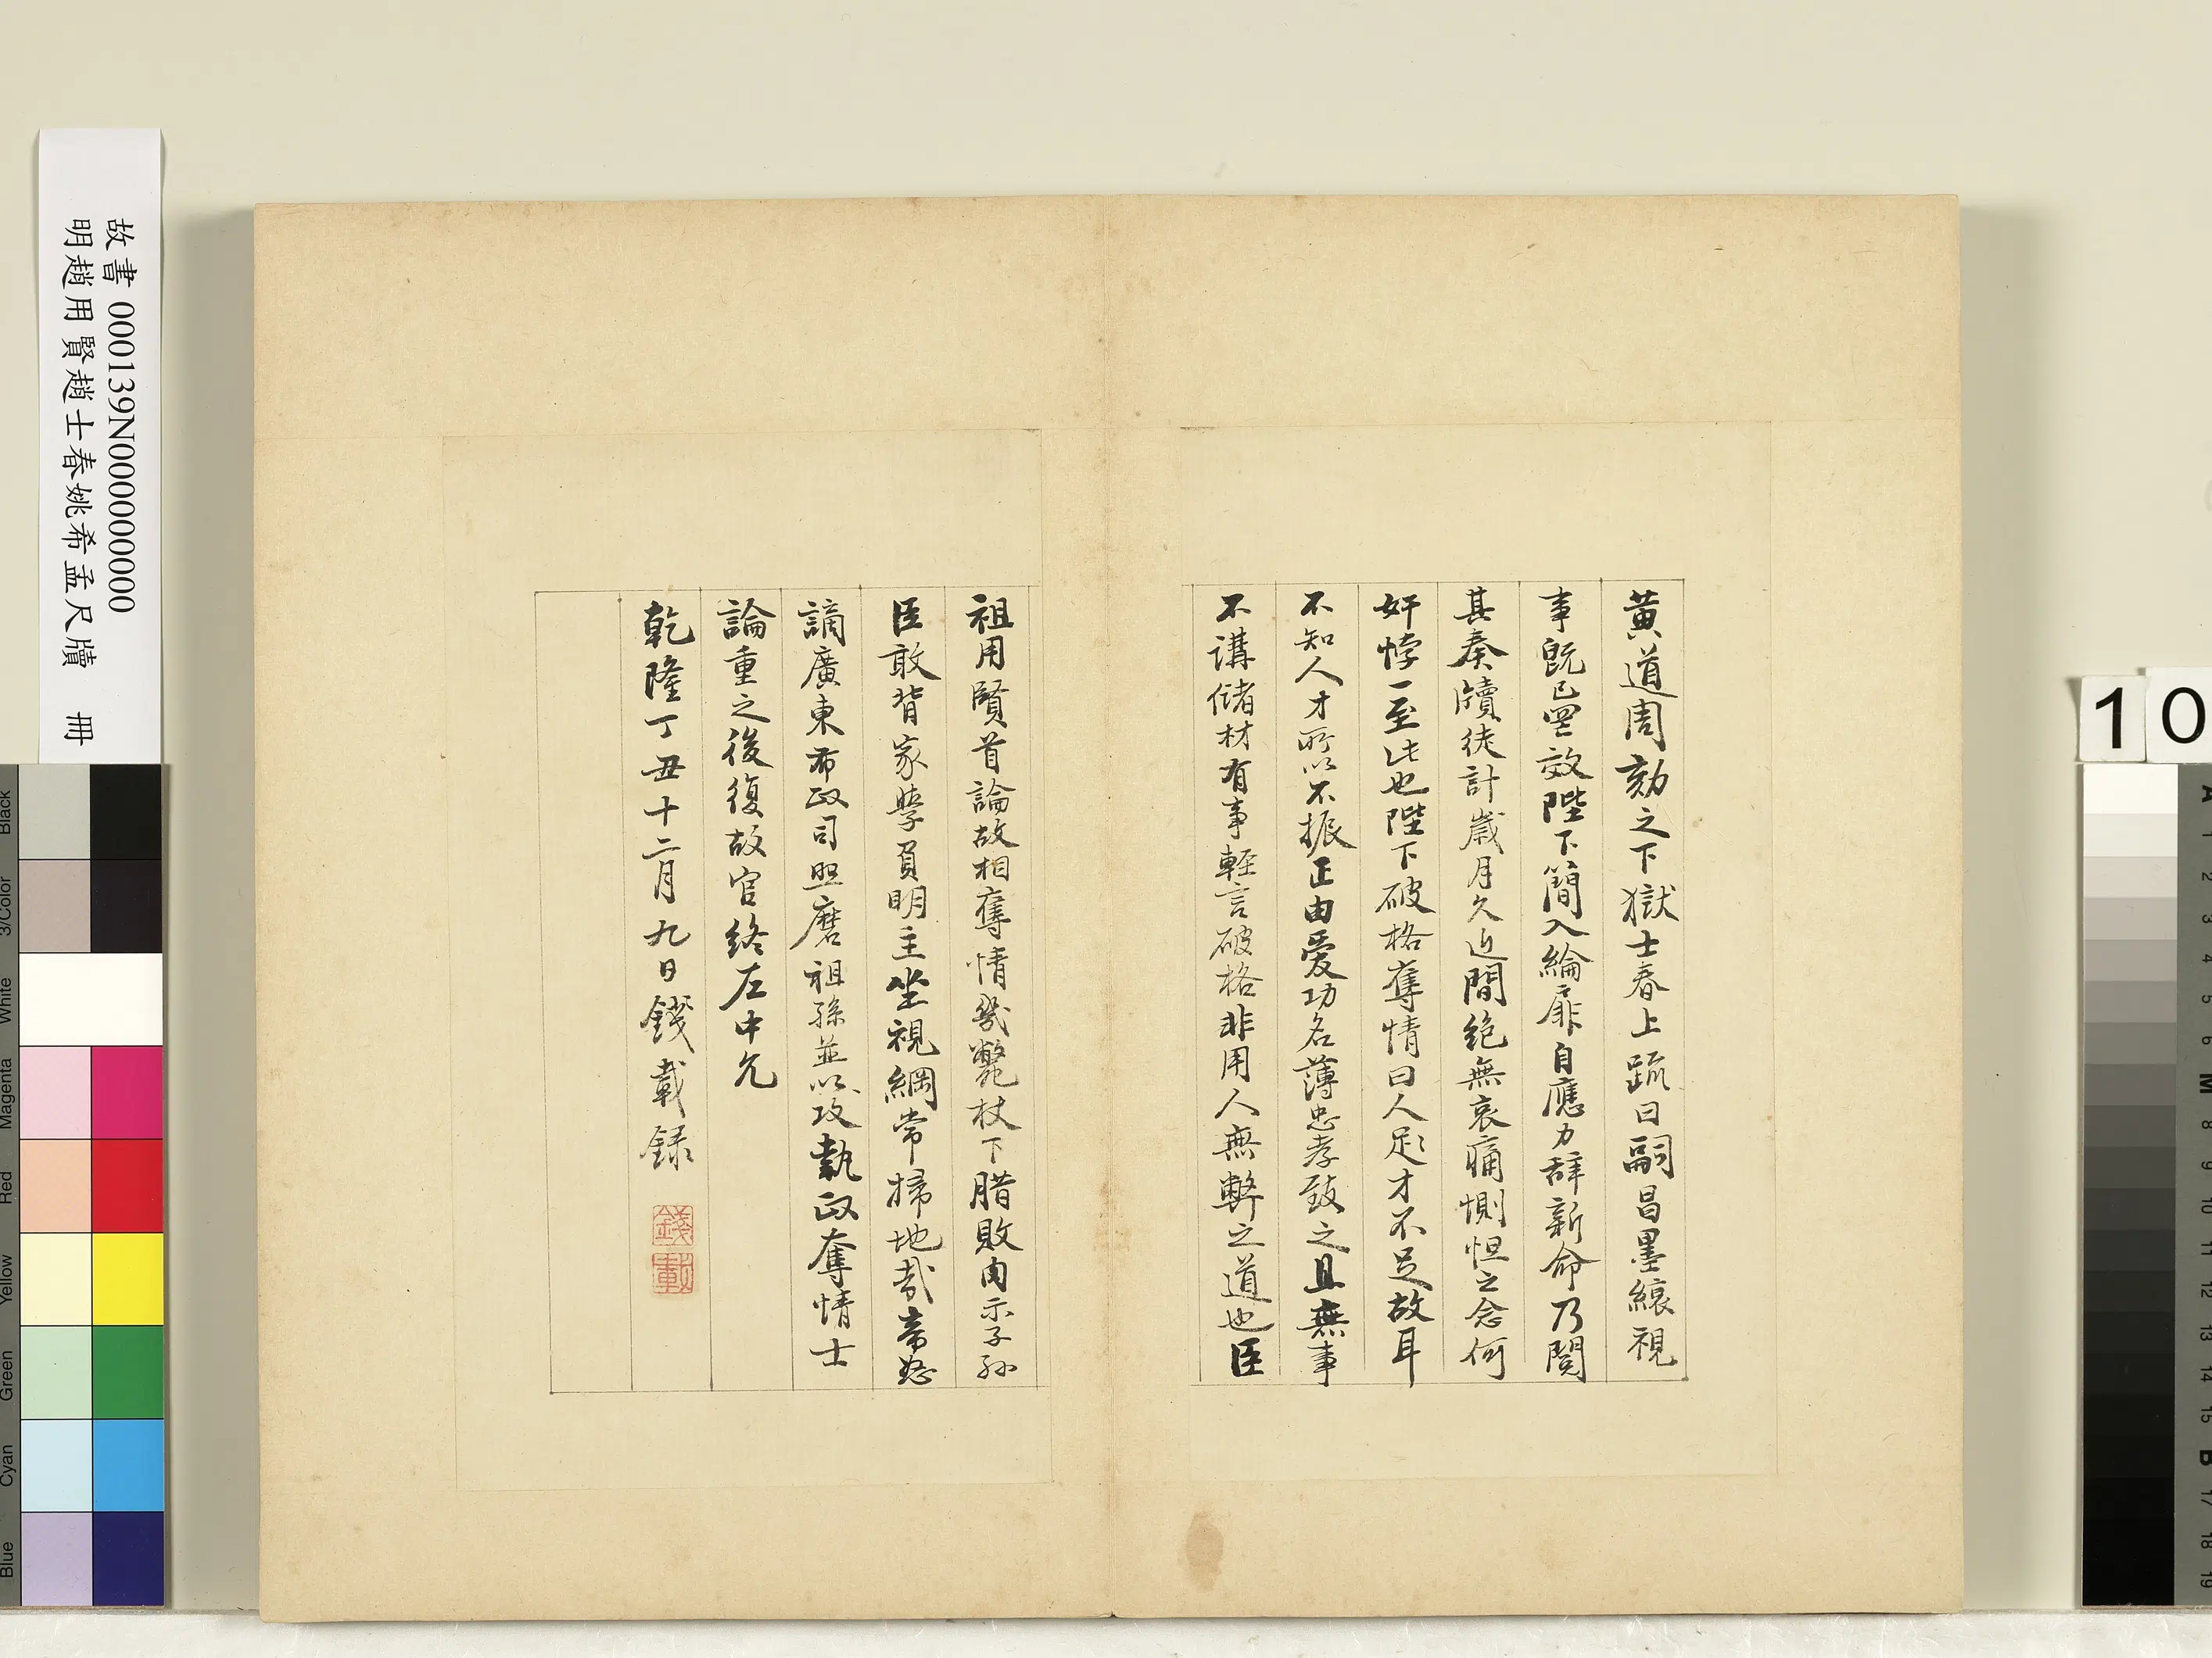 黃道周劾之下獄士春上疏曰嗣昌墨縗視
事旣已罔效陛下簡入綸扉自應力辞新命乃閱
其奏牘徒計歲月久近間絕無哀痛惻怛之念何
奸悖一至此也陛下破格奪情曰人足才不足故耳
不知人才所以不振正由愛功名薄忠孝致之且無事
不講儲材有事輕言破格非用人無弊之道也臣
祖用賢首論故相奪情幾斃杖下腊敗肉示子孫
臣敢背家學負明主坐視綱常掃地哉帝怒
謫廣東布政司照磨祖孫並以攻執政奪情士
論重之後復故官終左中允
乾隆丁丑十二月九日錢載録
錢載
故書 000139N000000000
明趙用賢趙士春姚希孟尺牘 冊
10
Black
3/Color
White
Magenta
Red
Yellow
Green
Cyan
Blue
A
1
2
3
4
5
6
M
8
9
10
11
12
13
14
15
B
17
18
19